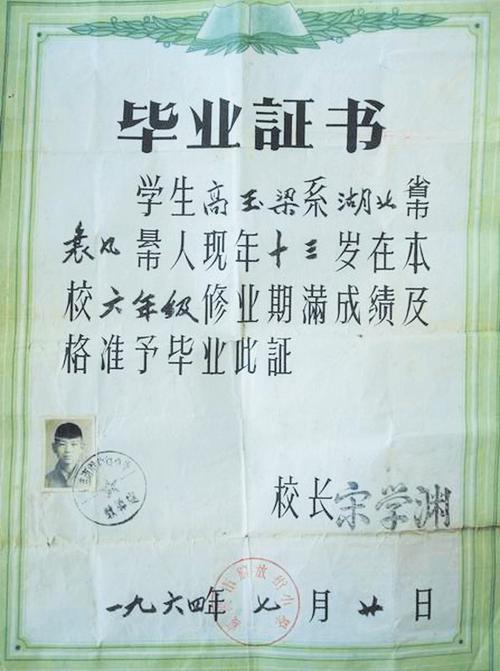 毕业証书
学生高玉梁系湖北省市
襄凡县市人现年十三岁在本
校六年级修业期满成绩及
格准予毕业此証
校长宋学渊
一九六四年七月廿日